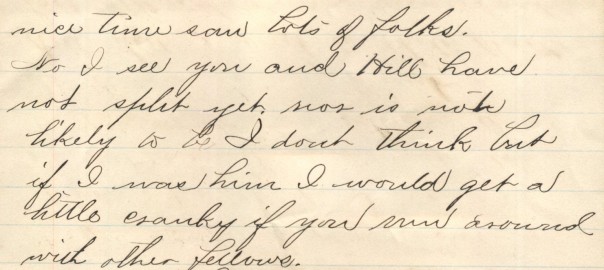 nice time saw lots of folks.
No I see you and Hill have
not split yet. nor is not
likely to to I dont think but
if I was him I would get a
little cranky if you run around
with other fellows.